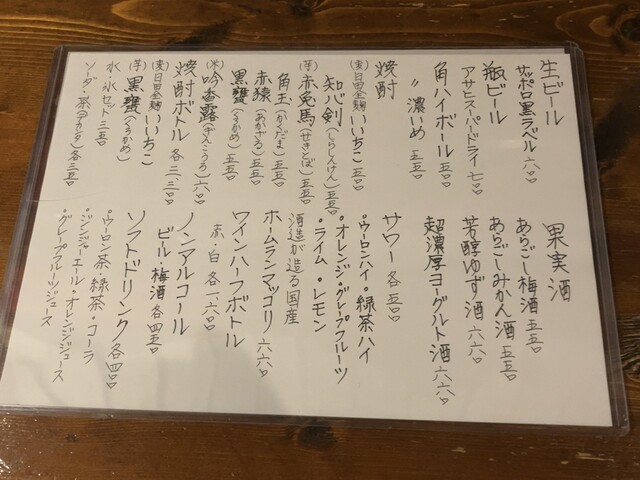 生ビール
サッポロ黒ラベル 六〇〇
瓶ビール
アサヒスーパードライ 七〇〇
角ハイボール 五〇〇
〃 濃いめ 五五〇
焼酎
(麦)日田全麹 いいちこ 五〇〇
知心剣(しらしんけん)五五〇
(芋)赤兎馬(せきとば)五五〇
角玉(かくだま)五五〇
赤猿(あかざる)五五〇
黒甕(くろかめ)五五〇
(米)吟香露(ぎんこうろ)六〇〇
焼酎ボトル 各三、三〇〇
(麦)日田全麹 いいちこ
(芋)黒甕(くろかめ)
水・氷セット 三五〇
ソーダ・茶(デカンタ)各三五〇
果実酒
あらごし梅酒 五五〇
あらごしみかん酒 五五〇
芳醇ゆず酒 六六〇
超濃厚ヨーグルト酒 六六〇
サワー 各五〇〇
・ウーロンハイ・緑茶ハイ
・オレンジ・グレープフルーツ
・ライム・レモン
酒造が造る国産
ホームランマッコリ 六六〇
ワインハーフボトル
赤・白 各一、一六〇〇
ノンアルコール
ビール・梅酒 各四五〇
ソフトドリンク 各四〇〇
・ウーロン茶・緑茶・コーラ
・ジンジャーエール・オレンジジュース
・グレープフルーツジュース